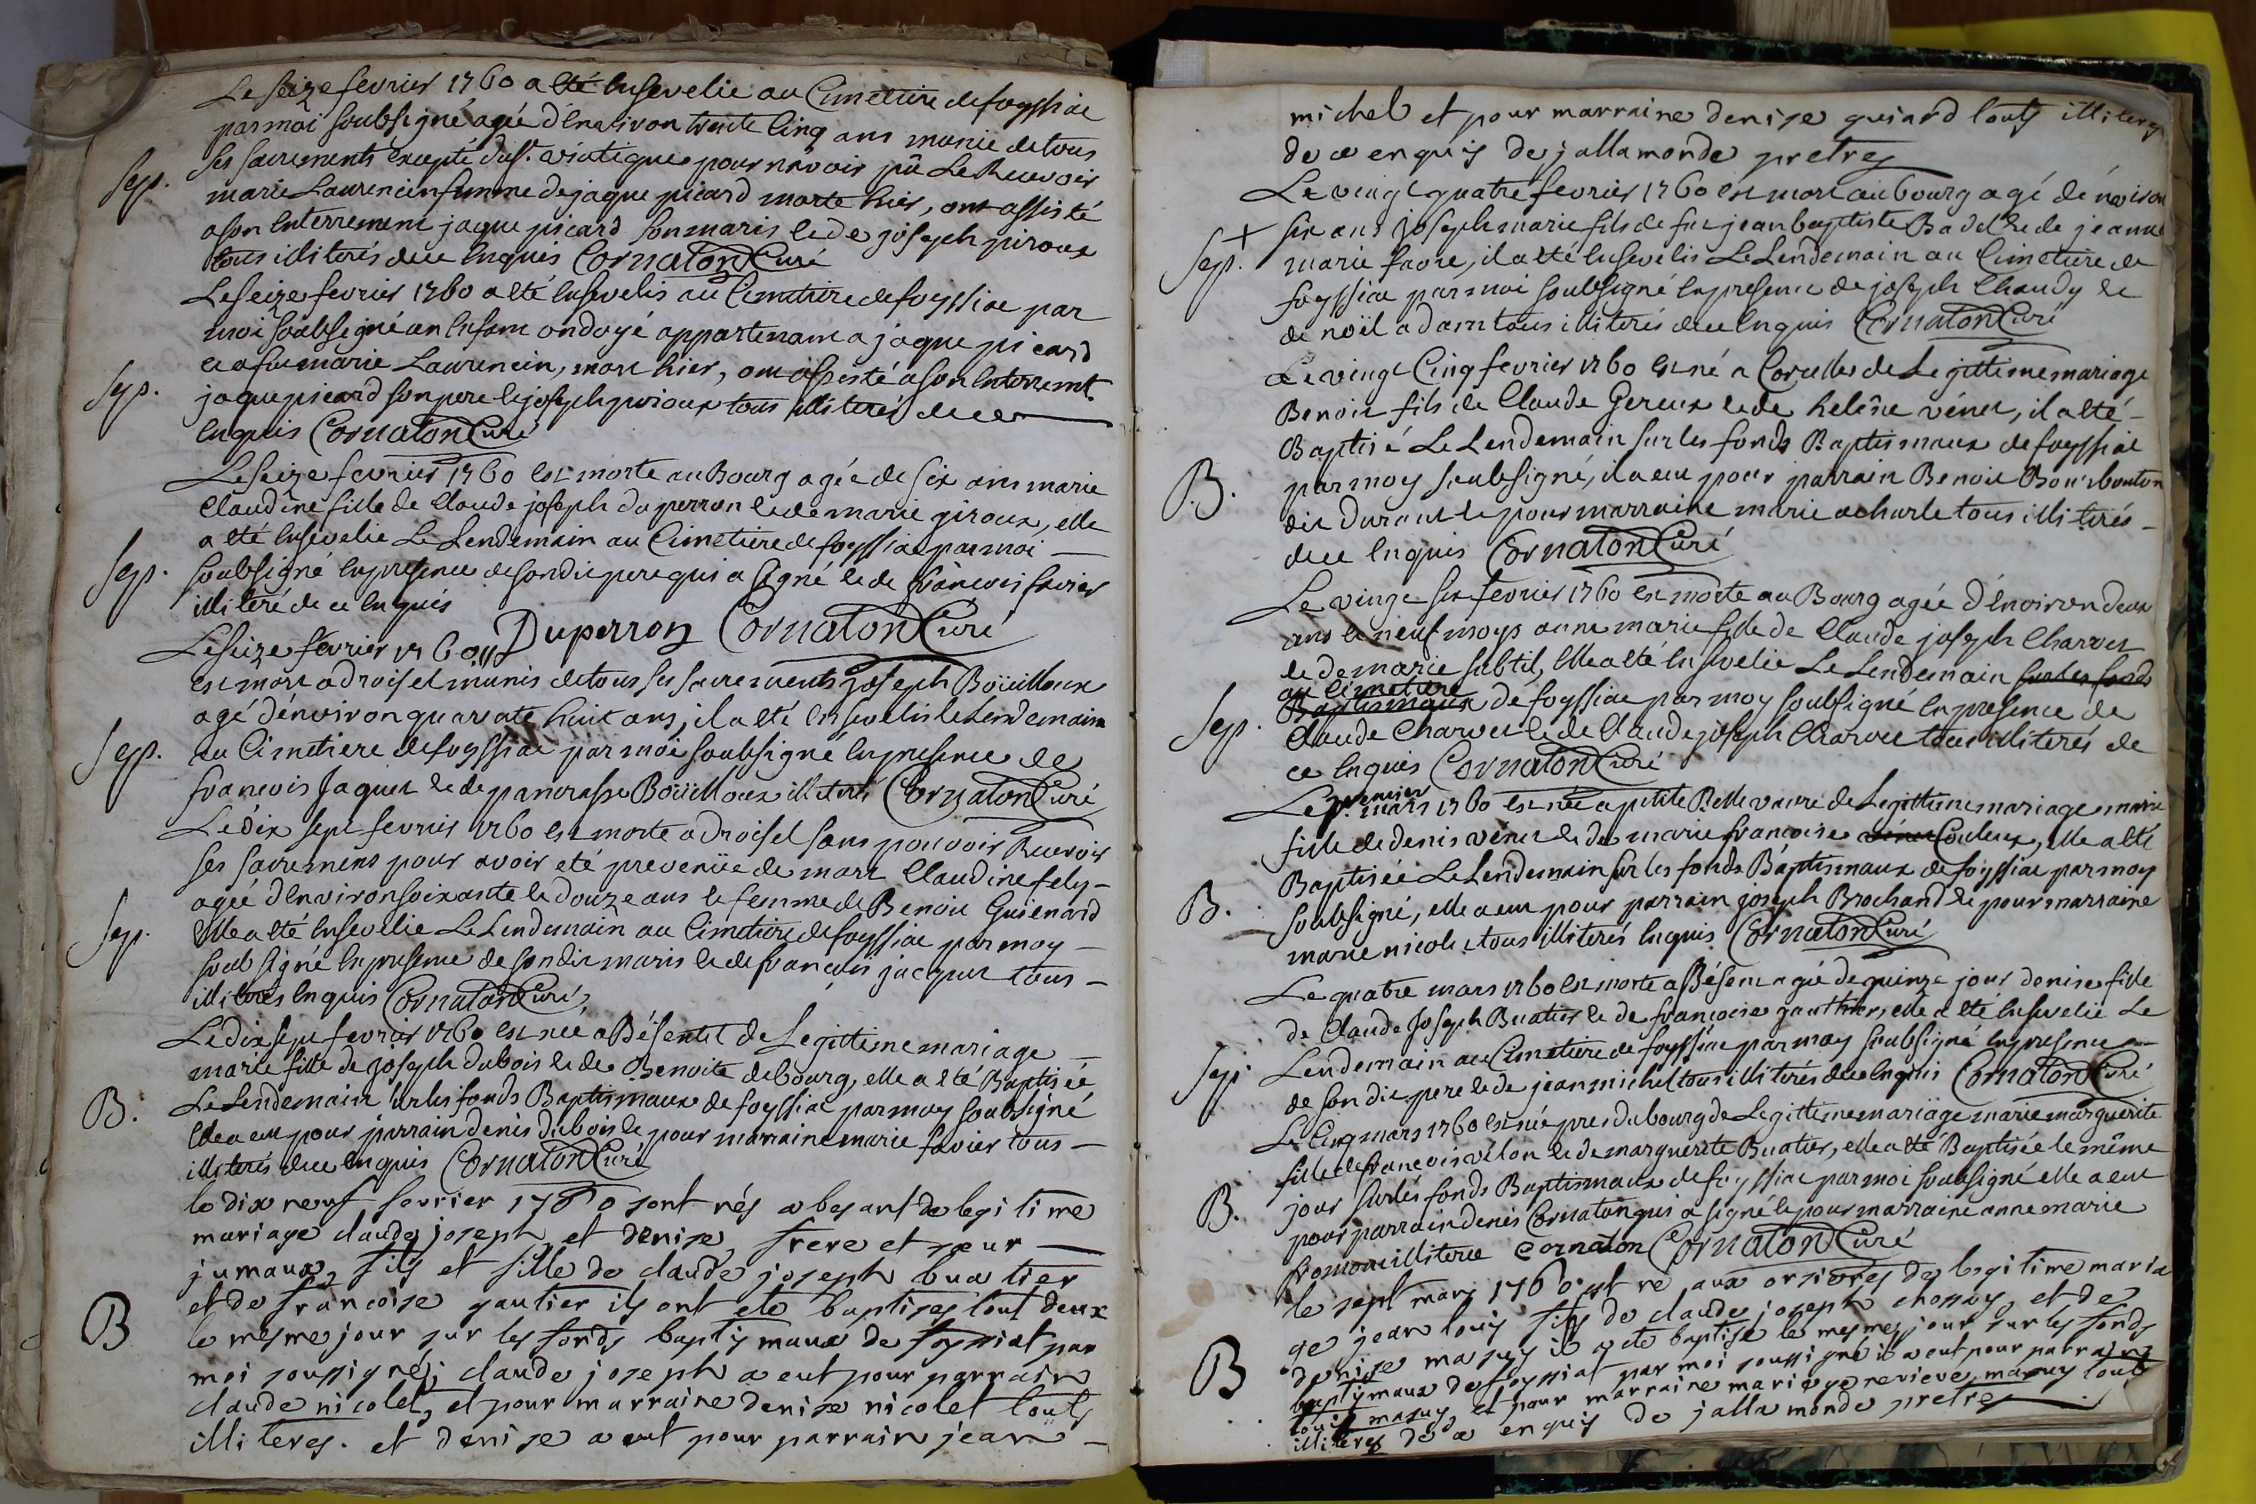 Le seize fevrier 1760 a été Ensevelie au Cimetiere de foyssia
par moi soubsigné agée d'Environ trente Cinq ans munie de tous
Sep. ses sacrements Excepté du st. viatique pour n'avoir pû Le Recevoir
marie Laurencin femme de jaque picard morte hier, ont assisté
a son Enterrement jaque picard son maris et de joseph piroux
tous illiterés de ce Enquis Cornaton Curé
Le seize fevrier 1760 a été Ensevelis au Cimetiere de foyssia par
moi soubsigné un Enfant ondoyé appartenant a jaque picard
et a fue marie Laurencin, mort hier, ont assisté a son Enterremt.
Sep. jaque picard son pere et joseph piroux tous illiterés de ce
Enquis Cornaton Curé
Le seize fevrier 1760 est morte au Bourg agée de six ans marie
Claudine fille de Claude joseph du perron et de marie giroux, elle
a été Ensevelie Le Lendemain au Cimetiere de foyssia par moi
Sep. soubsigné En presence de son dit pere qui a signé et de françois favier
illiteré de ce Enquis
Duperron Cornaton Curé
Le seize fevrier 1760
est mort a Droisel munis de tous ses sacrements joseph Boüilloux
agé d'environ quarante huit ans, il a été Ensevelis le Lendemain
Sep. au Cimetiere de foyssia par moi soubsigné En presence de
francois Jaquet et de pancrasse Boüilloux illiterés Cornaton Curé
Le dix sept fevrier 1760 est morte a Droisel sans pouvoir Recevoir
ses sacremens pour avoir eté prevenüe de mort Claudine fely
agée d'Environ soixante et douze ans et femme de Benoit Guienard
Sep. Elle a été Ensevelie Le Lendemain au Cimetiere de foyssia par moy
soubsigné En presence de son dit maris et de francois jacquet tous
illiterés Enquis Cornaton Curé
Le dix sept fevrier 1760 est née a Bésentet de Legittime mariage
marie fille de joseph dubois et de Benoite debourg, elle a été Baptisée
B. Le Lendemain sur les fonds Baptismaux de foyssia par moy soubsigné
Elle a eu pour parrain denis dubois et pour marraine marie favier tous
illiterés de ce Enquis Cornaton Curé
le dix neuf fevrier 1760 sont nés a besant de legitime
mariage claude joseph et denise frere et sœur
jumaux, fils et fille de claude joseph buatier
et de francoise gautier ils ont eté baptises tout deux
B le mesme jour sur les fonds baptismaux de foyssiat par
moi soussigné; claude joseph a eut pour parrain
claude nicolet, et pour marraine denise nicolet touts
illiteres. et denise a eut pour parrain jean
michel et pour marraine denise guiard touts illiteres
de ce enquis de jallamonde pretres
Le vingt quatre fevrier 1760 est mort au bourg agé d'environ
six ans joseph marie fils de feu jean baptiste Badel et de jeanne
Sep. marie favre, il a été Ensevelis Le Lendemain au Cimetiere de
foyssia par moi soubsigné En presence de joseph Chaudy et
de noël adam tous illiterés de ce Enquis Cornaton Curé
Le vingt Cinq fevrier 1760 est né a Corcelles de Legittime mariage
Benoit fils de Claude Gereux et de helêne vénet, il a été
Baptisé Le Lendemain sur les fonds Baptismaux de foyssia
B. par moy soubsigné, il a eu pour parrain Benoit Bourbonton
dit Durant et pour marraine marie acharle tous illiterés
de ce Enquis Cornaton Curé
Le vingt six fevrier 1760 est morte au Bourg agée d'énviron deux
ans et neuf moys anne marie fille de Claude joseph Charvet
et de marie subtil, Elle a été Ensevelie Le Lendemain sur les fonds
au Cimetiere
Sep. Baptismaux de foyssia par moy soubsigné En presence de
Claude Charvet et de Claude joseph Charvet tous illiterés de
ce Enquis Cornaton Curé
Le premier mars 1760 est née a petite Bellevavre de Legittime mariage marie
fille de denis vénet et de marie francoise Couleux, Elle a été
Baptisée Le Lendemain sur les fonds Baptismaux de foyssia par moy
B. soubsigné, elle a eu pour parrain joseph Brochand et pour marraine
marie nicolet tous illiterés Enquis Cornaton Curé
Le quatre mars 1760 est morte a Bésent agée de quinze jour denise fille
de Claude joseph Buatier et de francoise gauthier, elle a été Ensevelie Le
Sep. Lendemain au Cimetiere de foyssia par moy soubsigné En presence
de son dit pere et de jean michel tous illiterés de ce Enquis Cornaton Curé
Le Cinq mars 1760 est née pres du bourg de Legittime mariage marie marguerite
fille de francois vélon et de marguerite Buatier, elle a été Baptisée le même
B. jour sur les fonds Baptismaux de foyssia par moi soubsigné elle a eu
pour parrain denis Cornaton qui a signé et pour marraine anne marie
fromont illiteree Cornaton Cornaton Curé
le sept mars 1760 est né aux orsieres de legitime maria
ge jean louis fils de claude joseph chossay et de
B denise mazuy il a été baptisé le mesme jour sur les fonds
baptismaux de foyssiat par moi soussigné il a eut pour parrain
louis mazuy et pour marraine marie genevieve mazuy touts
illiteres de ce enquis de jallamonde pretres